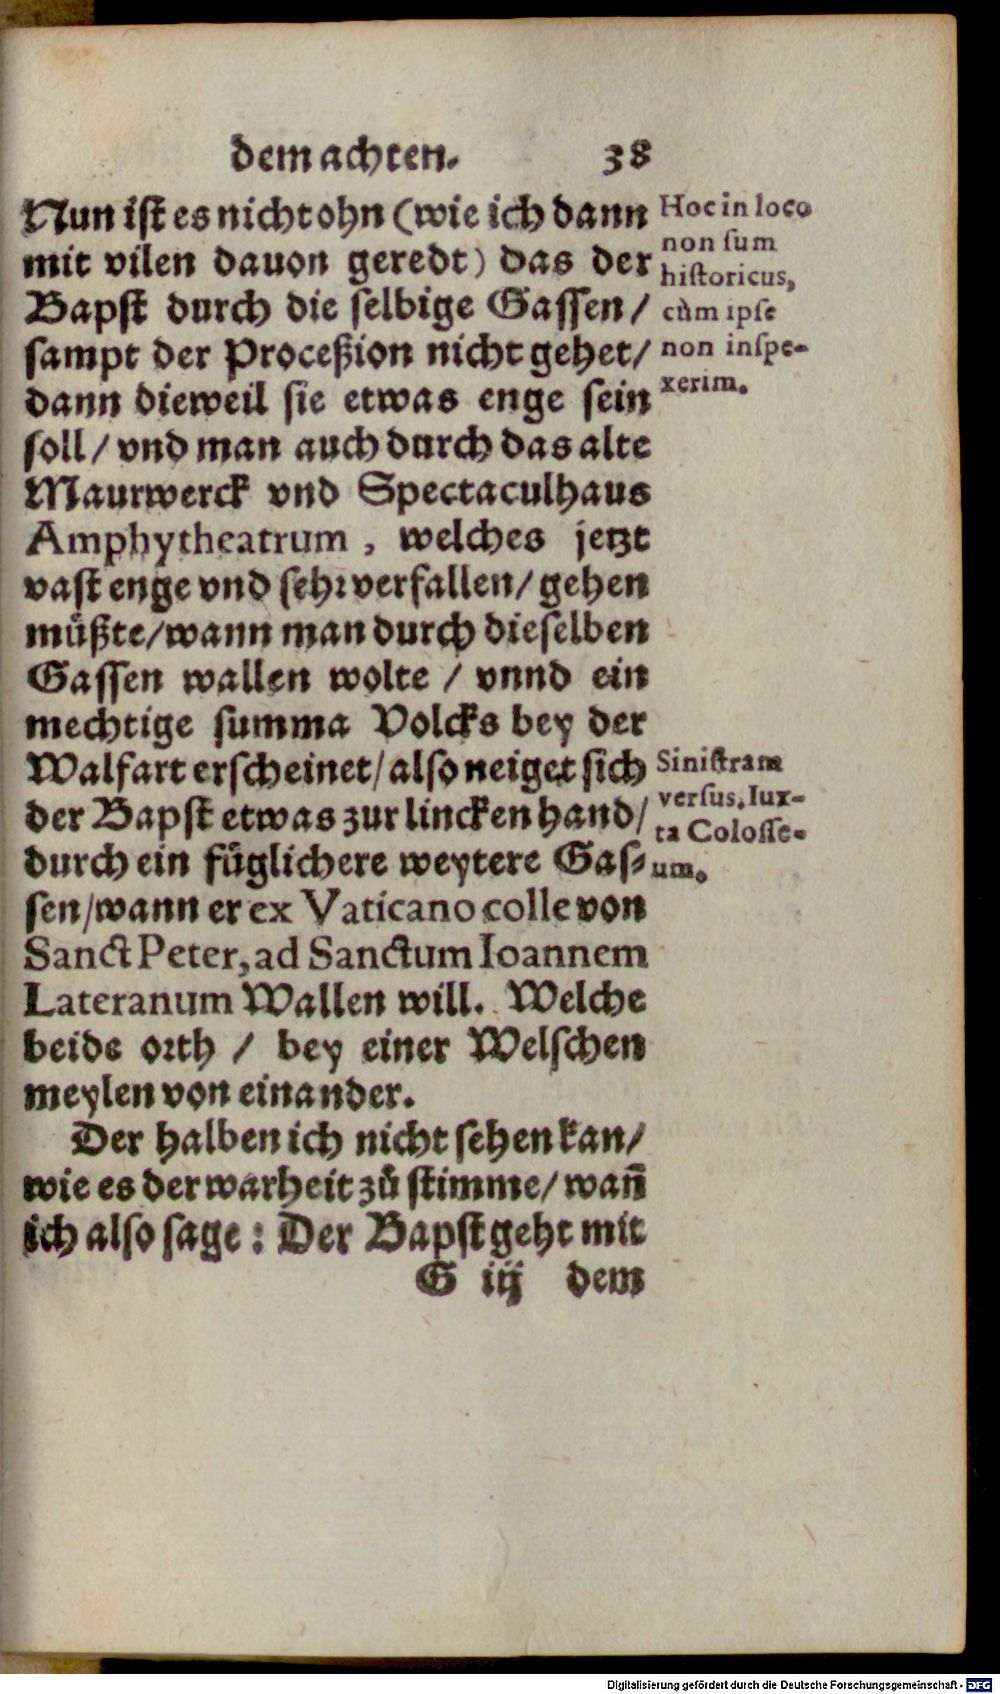 dem achten. 38
Nun ist es nicht ohn (wie ich dann
mit vilen dauon geredt) das der
Bapst durch die selbige Gassen /
sampt der Proceßion nicht gehet /
dann dieweil sie etwas enge sein
soll / vnd man auch durch das alte
Maurwerck vnd Spectaculhaus
Amphytheatrum, welches jetzt
vast enge vnd sehr verfallen / gehen
müßte / wann man durch dieselben
Gassen wallen wolte / vnnd ein
mechtige summa Volcks bey der
Walfart erscheinet / also neiget sich
der Bapst etwas zur lincken hand /
durch ein füglichere weytere Gas-
sen / wann er ex Vaticano colle von
Sanct Peter, ad Sanctum Ioannem
Lateranum Wallen will. Welche
beide orth / bey einer Welschen
meylen von einander.
Der halben ich nicht sehen kan /
wie es der warheit zů stimme / wañ
ich also sage : Der Bapst geht mit
G iij dem
Hoc in loco
non sum
historicus,
cùm ipse
non inspe-
xerim.
Sinistram
versus. Iux-
ta Colosse-
um.
Digitalisierung gefördert durch die Deutsche Forschungsgemeinschaft - DFG